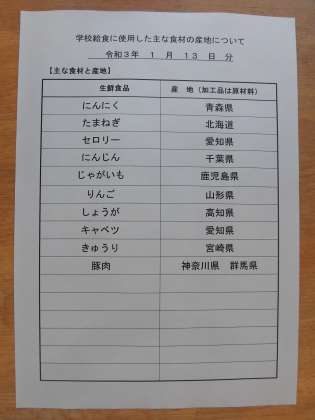 学校給食に使用した主な食材の産地について
令和３年 １ 月 １３ 日 分
【主な食材と産地】
生鮮食品 産 地（加工品は原材料）
にんにく 青森県
たまねぎ 北海道
セロリー 愛知県
にんじん 千葉県
じゃがいも 鹿児島県
りんご 山形県
しょうが 高知県
キャベツ 愛知県
きゅうり 宮崎県
豚肉 神奈川県 群馬県